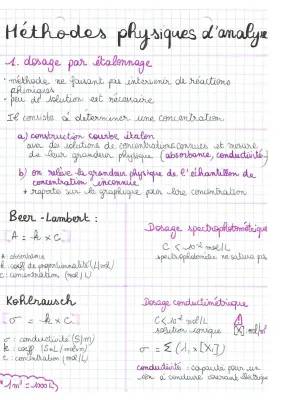 Méthodes physiques d'analyse
1. dosage par étalonnage
· méthode ne faisant pas intervenir de réactions
chimiques
· peu de solution est nécessaire
Il consiste à déterminer une concentration
a) construction courbe étalon
avec des solutions de concentrations connues et mesure
de leur grandeur physique (absorbance, conductivité..)
b) on relève la grandeur physique de l'échantillon de
concentration inconnue
+ reporte sur le graphique pour lire concentration
Beer-Lambert :
Dosage spectrophotométrique
A = k x c
C < 10⁻² mol/L
spectrophotomètre ne sature pas
A : absorbance
k : coeff de proportionnalité (L/mol)
c : concentration (mol/L)
Kohlrausch
Dosage conductimétrique
σ = k x c
C < 10⁻² mol/L
solution ionique
[X] mol/m³
σ = Σ (λᵢ x [Xᵢ])
σ : conductivité (S/m)
k : coeff (S.m²/mol)
c : concentration (mol/L)
conductivité : capacité pour un
ion à conduire courant électrique
1 m³ = 1000L